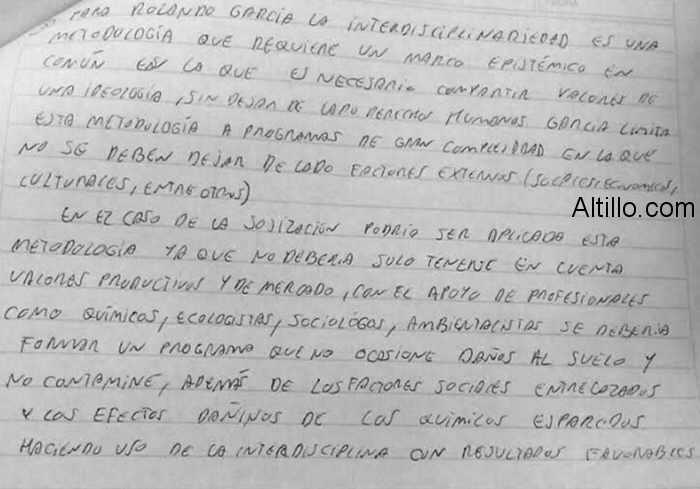 PARA ROLANDO GARCÍA LA INTERDISCIPLINARIEDAD ES UNA
METODOLOGÍA QUE REQUIERE UN MARCO EPISTÉMICO EN
COMÚN EN LA QUE ES NECESARIO COMPARTIR VALORES DE
UNA IDEOLOGÍA, SIN DEJAR DE LADO DERECHOS HUMANOS GARCIA LIMITA
ESTA METODOLOGÍA A PROGRAMAS DE GRAN COMPLEJIDAD EN LA QUE
NO SE DEBEN DEJAR DE LADO FACTORES EXTERNOS (SOCIOECONOMICOS,
CULTURALES, ENTRE OTROS)
Altillo.com
EN EL CASO DE LA SOJIZACIÓN PODRÍA SER APLICADA ESTA
METODOLOGÍA YA QUE NO DEBERIA SOLO TENERSE EN CUENTA
VALORES PRODUCTIVOS Y DE MERCADO, CON EL APOYO DE PROFESIONALES
COMO QUÍMICOS, ECOLOGISTAS, SOCIOLÓGOS, AMBIENTALISTAS SE DEBERIA
FORMAR UN PROGRAMA QUE NO OCASIONE DAÑOS AL SUELO Y
NO CONTAMINE, ADEMÁS DE LOS FACTORES SOCIALES ENTRELAZADOS
Y LOS EFECTOS DAÑINOS DE LOS QUÍMICOS ESPARCIDOS
HACIENDO USO DE LA INTERDISCIPLINA CON RESULTADOS FAVORABLES